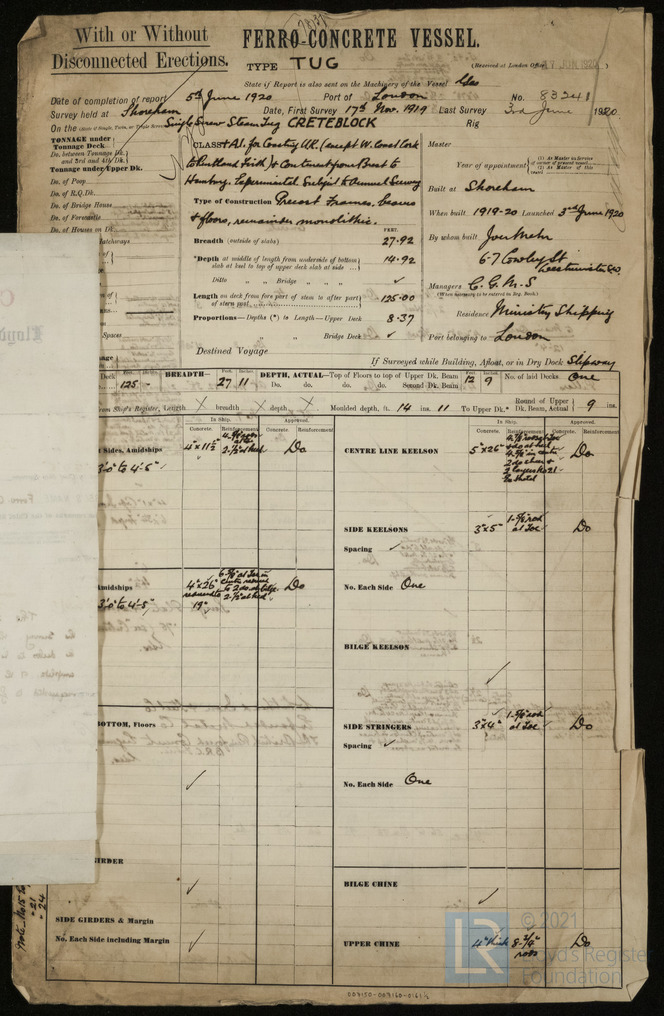 With or Without
Disconnected Erections.
FERRO-CONCRETE VESSEL.
TYPE TUG
(Received at London Office JUN 1920)
State if Report is also sent on the Machinery of the Vessel Yes
Date of completion of report 5th June 1920 Port of London No. 83241
Survey held at Shoreham Date, First Survey 17th Nov. 1919 Last Survey 3rd June 1920
On the Single Screw Steam Tug CRETEBLOCK Rig
TONNAGE under
Tonnage Deck
Do. between Tonnage Dk.
and 3rd and 4th Dk.
Tonnage under Upper Dk.
Do. of Poop
Do. of R.Q.Dk.
Do. of Bridge House
Do. of Forecastle
Do. of Houses on Dk.
Hatchways
Spaces
CLASS +A1. for Coasting U.K. (except W. Coast Cork
to Pentland Firth) & Continent from Brest to
Hamburg. Experimental Subject to Annual Survey
Type of Construction Precast Frames, beams
& floors, remainder monolithic.
FEET.
Breadth (outside of slabs) 27.92
*Depth at middle of length from underside of bottom
slab at keel to top of upper deck slab at side 14.92
Ditto " " Bridge "
Length on deck from fore part of stem to after part
of stern post 125.00
Proportions—Depths (*) to Length—Upper Deck 8.37
" " Bridge Deck
Destined Voyage
Master
Year of appointment
Built at Shoreham
When built 1919-20 Launched 3rd June 1920
By whom built John ver Mehr
6-7 Cowley St
Westminster SW
Managers C.G.M.S.
(Where necessary to be entered in Reg. Book.)
Residence Ministry Shipping
Port belonging to London
If Surveyed while Building, Afloat, or in Dry Dock Slipway
Deck 125 - BREADTH— 27 11 DEPTH, ACTUAL—Top of Floors to top of Upper Dk. Beam 12 9 No. of laid Decks One
Do. do. do. do. Second Dk. Beam
From Ship's Register, Length X breadth X depth X Moulded depth, ft. 14 ins. 11 To Upper Dk. Round of Upper Dk. Beam, Actual 9 ins.
In Ship. Approved. In Ship. Approved.
Concrete. Reinforcement Concrete. Reinforcement Concrete. Reinforcement Concrete. Reinforcement
Sides, Amidships 4"x11½" Do
3'0" to 4'-6"
CENTRE LINE KEELSON 5"x26" Do
SIDE KEELSONS 3"x5" 1-⅝ rod at Toe Do
Spacing
No. Each Side One
Amidships 4"x26" Do
3'0" to 4'-5" 19"
BILGE KEELSON
BOTTOM, Floors
SIDE STRINGERS 3"x4" 1-⅝ rod at Toe Do
Spacing
No. Each Side One
GIRDER
BILGE CHINE
SIDE GIRDERS & Margin
No. Each Side including Margin
UPPER CHINE 4" thick 8-¾" rods Do
LR © 2021
Lloyd's Register
Foundation
007150-007160-0161½